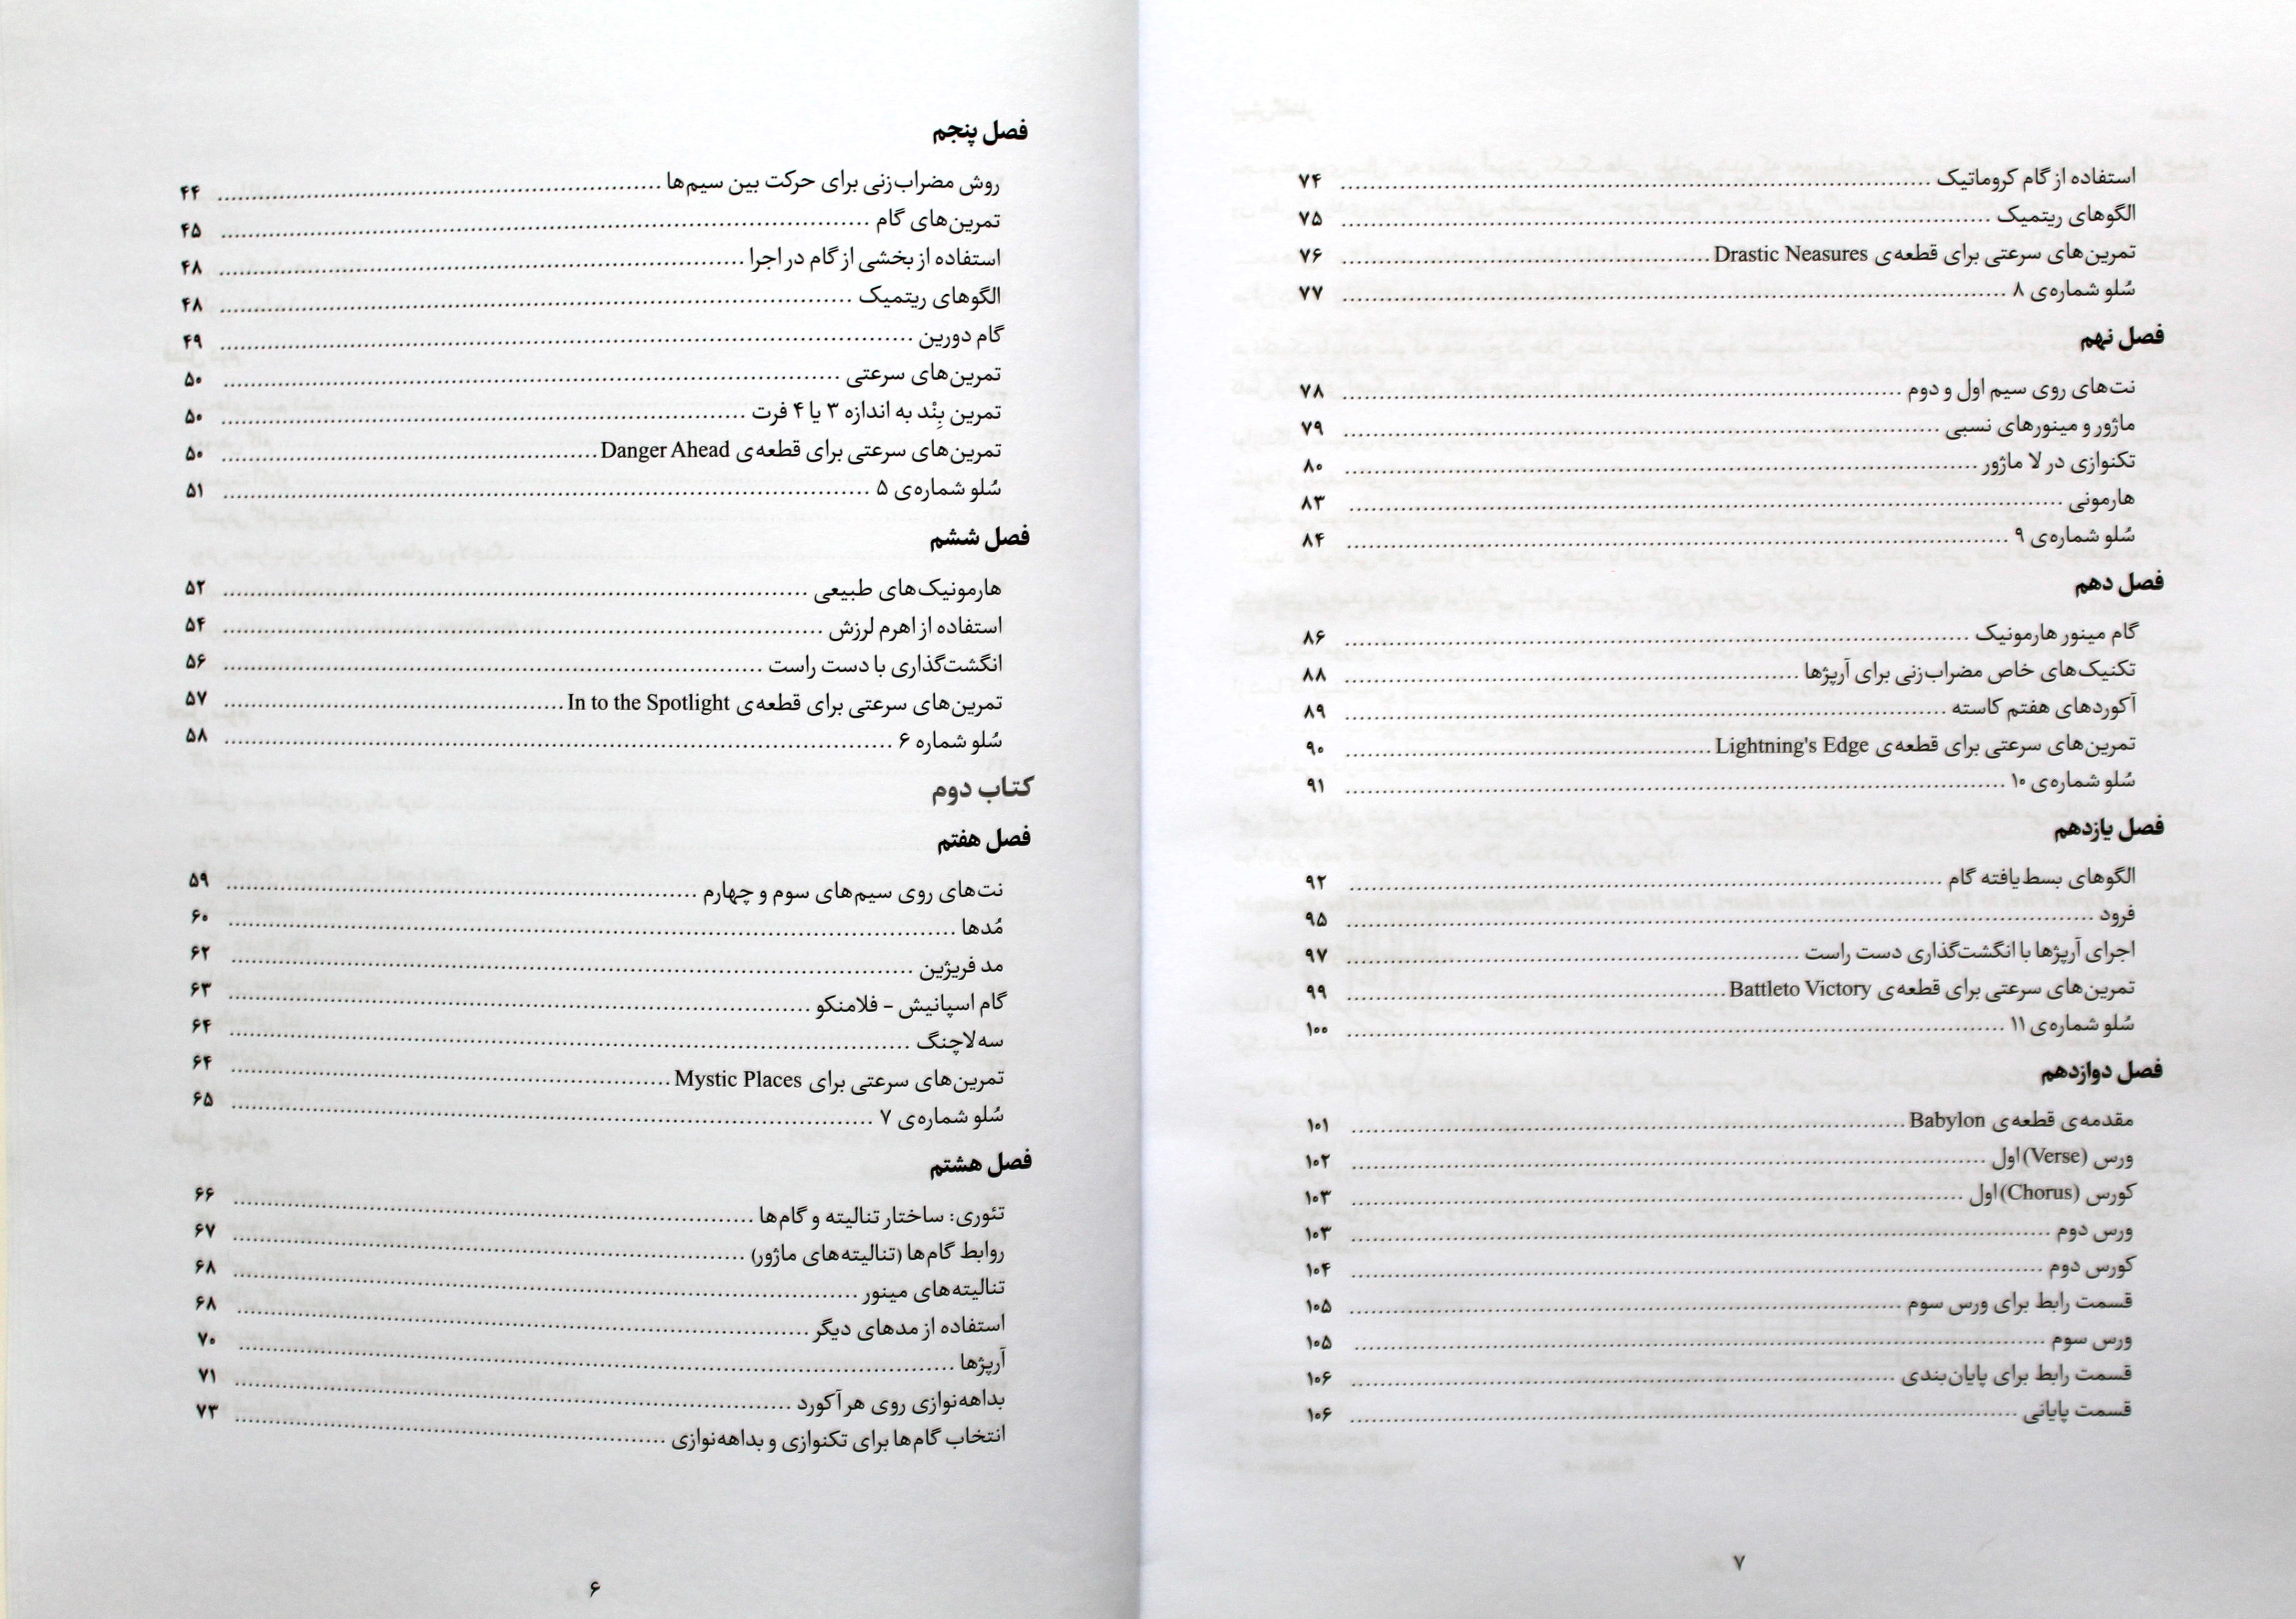 فصل پنجم
روش مضراب‌زنی برای حرکت بین سیم‌ها ........ ۴۴
تمرین‌های گام ........ ۴۵
استفاده از بخشی از گام در اجرا ........ ۴۸
الگوهای ریتمیک ........ ۴۸
گام دورین ........ ۴۹
تمرین‌های سرعتی ........ ۵۰
تمرین بِنْد به اندازه ۳ یا ۴ فرت ........ ۵۰
تمرین‌های سرعتی برای قطعه‌ی Danger Ahead ........ ۵۰
سُلو شماره‌ی ۵ ........ ۵۱
فصل ششم
هارمونیک‌های طبیعی ........ ۵۲
استفاده از اهرم لرزش ........ ۵۴
انگشت‌گذاری با دست راست ........ ۵۶
تمرین‌های سرعتی برای قطعه‌ی In to the Spotlight ........ ۵۷
سُلو شماره ۶ ........ ۵۸
کتاب دوم
فصل هفتم
نت‌های روی سیم‌های سوم و چهارم ........ ۵۹
مُدها ........ ۶۰
مد فریژین ........ ۶۲
گام اسپانیش - فلامنکو ........ ۶۳
سه‌لاچنگ ........ ۶۴
تمرین‌های سرعتی برای Mystic Places ........ ۶۴
سُلو شماره‌ی ۷ ........ ۶۵
فصل هشتم
تئوری: ساختار تنالیته و گام‌ها ........ ۶۶
روابط گام‌ها (تنالیته‌های ماژور) ........ ۶۷
تنالیته‌های مینور ........ ۶۸
استفاده از مدهای دیگر ........ ۶۸
آرپژها ........ ۷۰
بداهه‌نوازی روی هر آکورد ........ ۷۱
انتخاب گام‌ها برای تکنوازی و بداهه‌نوازی ........ ۷۳
۶
استفاده از گام کروماتیک ........ ۷۴
الگوهای ریتمیک ........ ۷۵
تمرین‌های سرعتی برای قطعه‌ی Drastic Neasures ........ ۷۶
سُلو شماره‌ی ۸ ........ ۷۷
فصل نهم
نت‌های روی سیم اول و دوم ........ ۷۸
ماژور و مینورهای نسبی ........ ۷۹
تکنوازی در لا ماژور ........ ۸۰
هارمونی ........ ۸۳
سُلو شماره‌ی ۹ ........ ۸۴
فصل دهم
گام مینور هارمونیک ........ ۸۶
تکنیک‌های خاص مضراب‌زنی برای آرپژها ........ ۸۸
آکوردهای هفتم کاسته ........ ۸۹
تمرین‌های سرعتی برای قطعه‌ی Lightning's Edge ........ ۹۰
سُلو شماره‌ی ۱۰ ........ ۹۱
فصل یازدهم
الگوهای بسط‌یافته گام ........ ۹۲
فرود ........ ۹۵
اجرای آرپژها با انگشت‌گذاری دست راست ........ ۹۷
تمرین‌های سرعتی برای قطعه‌ی Battleto Victory ........ ۹۹
سُلو شماره‌ی ۱۱ ........ ۱۰۰
فصل دوازدهم
مقدمه‌ی قطعه‌ی Babylon ........ ۱۰۱
ورس (Verse) اول ........ ۱۰۲
کورس (Chorus) اول ........ ۱۰۳
ورس دوم ........ ۱۰۳
کورس دوم ........ ۱۰۴
قسمت رابط برای ورس سوم ........ ۱۰۵
ورس سوم ........ ۱۰۵
قسمت رابط برای پایان‌بندی ........ ۱۰۶
قسمت پایانی ........ ۱۰۶
۷